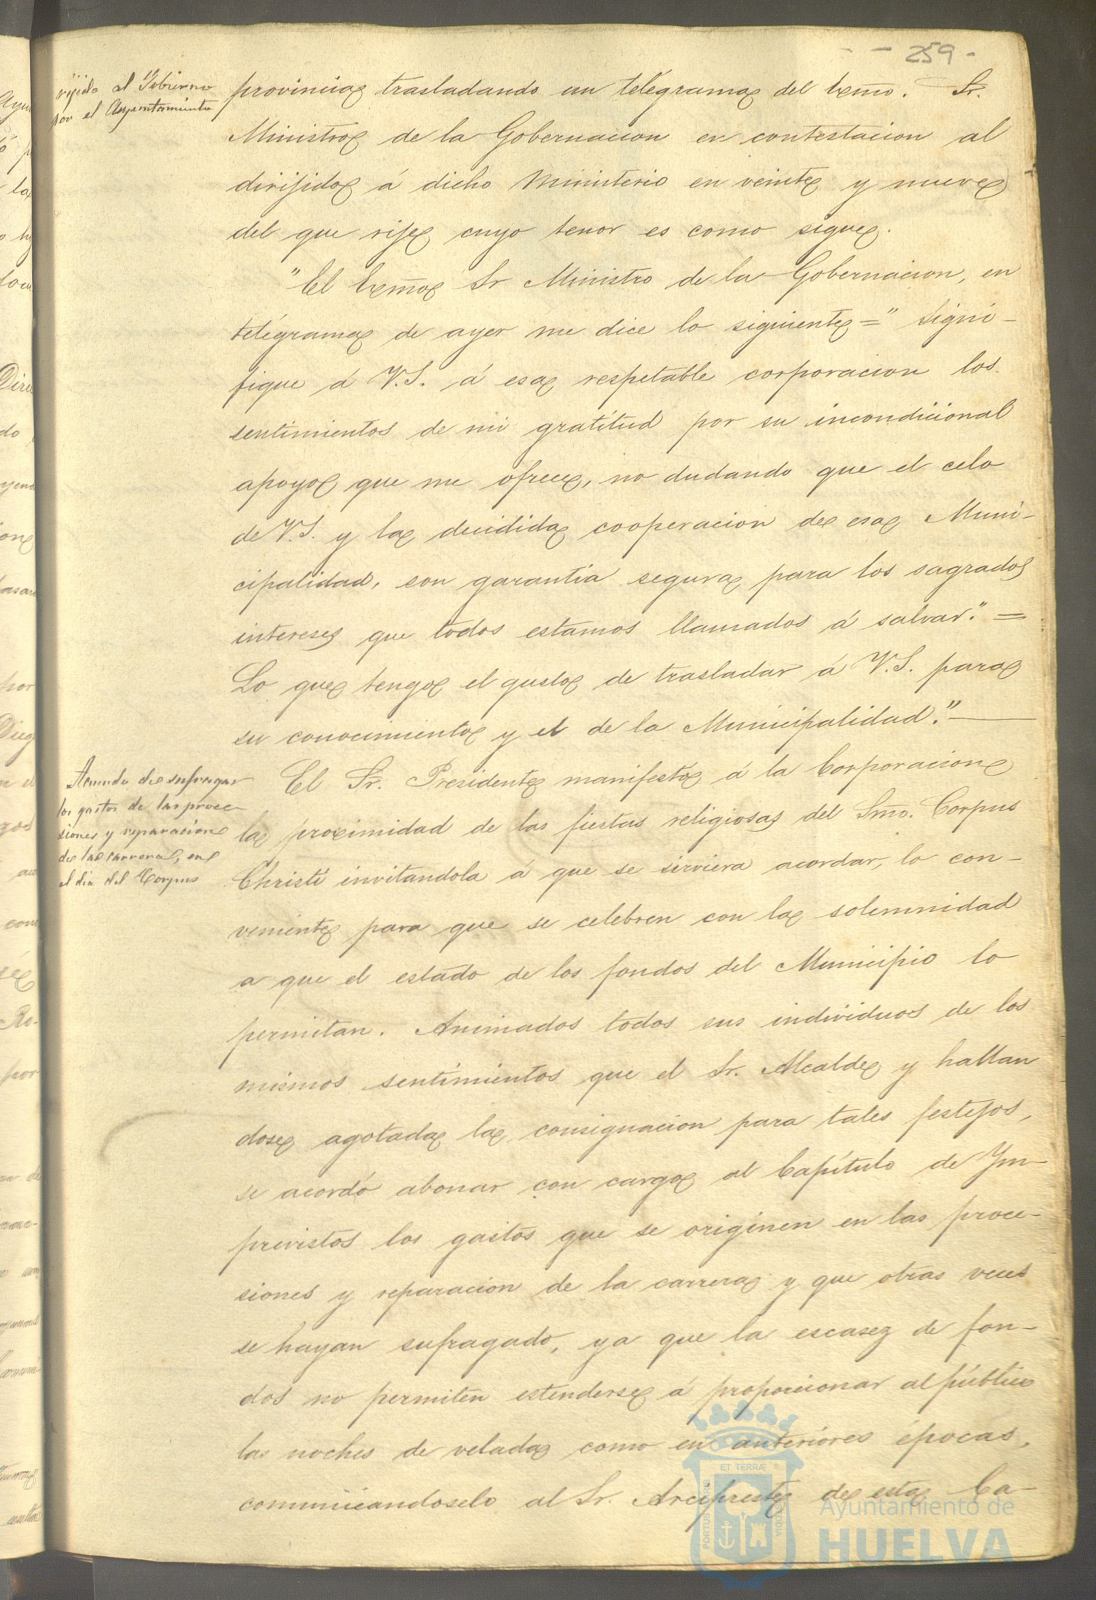 - 259 -
rijido al Gobierno
por el Ayuntamiento
provincia trasladando un telégrama del Exmo. Sr.
Ministro de la Gobernacion en contestacion al
dirijido á dicho Ministerio en veinte y nueve
del que rije cuyo tenor es como sigue.
"El Exmo Sr Ministro de la Gobernacion, en
telégrama de ayer me dice lo siguiente=" Signi-
fique á V.S. á esa respetable corporacion los
sentimientos de mi gratitud por su incondicional
apoyo que me ofrece, no dudando que el celo
de V.S. y la decidida cooperacion de esa Muni-
cipalidad, son garantia segura para los sagrados
intereses que todos estamos llamados á salvar." =
Lo que tengo el gusto de trasladar á V.S. para
su conocimiento y el de la Municipalidad."
Acuerdo de sufragar
los gastos de las proce-
siones y reparacion
de la carrera, en
el dia del Corpus
El Sr. Presidente manifestó á la Corporacion
la proximidad de las fiestas religiosas del Smo. Corpus
Christi invitandola á que se sirviera acordar, lo con-
veniente para que se celebren con la solemnidad
a que el estado de los fondos del Municipio lo
permitan. Animados todos sus individuos de los
mismos sentimientos que el Sr. Alcalde y hallan
dose agotada la consignacion para tales festejos,
se acordó abonar con cargo al Capítulo de Ym-
previstos los gastos que se originen en las proce-
siones y reparacion de la carrera y que otras veces
se hayan sufragado, ya que la escasez de fon-
dos no permiten estenderse á proporcionar al público
las noches de velada como en anteriores épocas,
comunicandoselo al Sr. Arcipreste de esta Ca-
ET TERRÆ
PORTUS
CUSTODIA
Ayuntamiento de
HUELVA